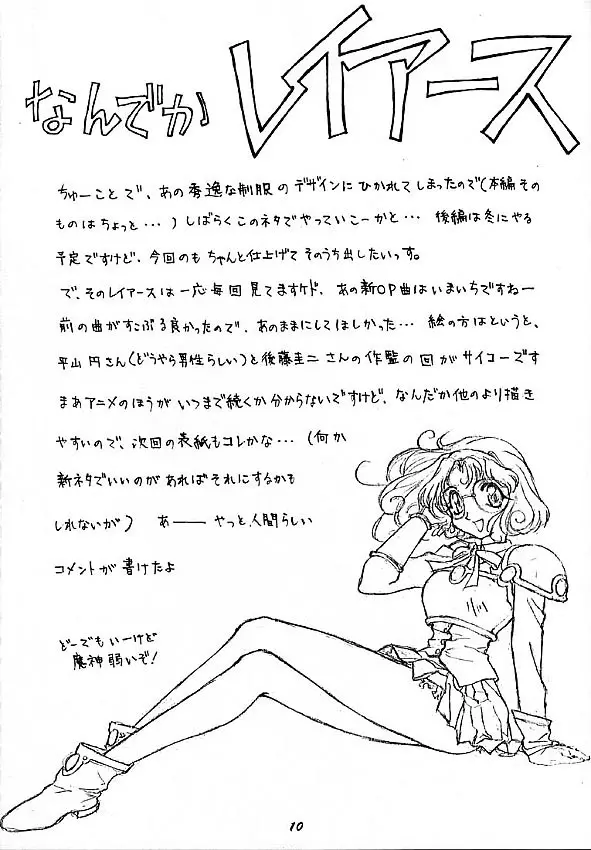 なんでか レイアース
ちゅーことで、あの秀逸な制服のデザインにひかれてしまったので(本編その
ものはちょっと…)しばらくこのネタでやっていこーかと… 後編は冬にやる
予定ですけど、今回のもちゃんと仕上げてそのうち出したいっす。
で、そのレイアースは一応毎回見てますケド、あの新OP曲はいまいちですねー
前の曲がすこぶる良かったので、あのままにしてほしかった… 絵の方はというと、
平山円さん(どうやら男性らしい)と後藤圭二さんの作監の回がサイコーです
まあアニメのほうがいつまで続くか分からないですけど、なんだか他のより描き
やすいので、次回の表紙もコレかな…(何か
新ネタでいいのがあればそれにするかも
しれないが) あー やっと、人間らしい
コメントが書けたよ
どーでもいーけど
魔神弱いぞ!
10